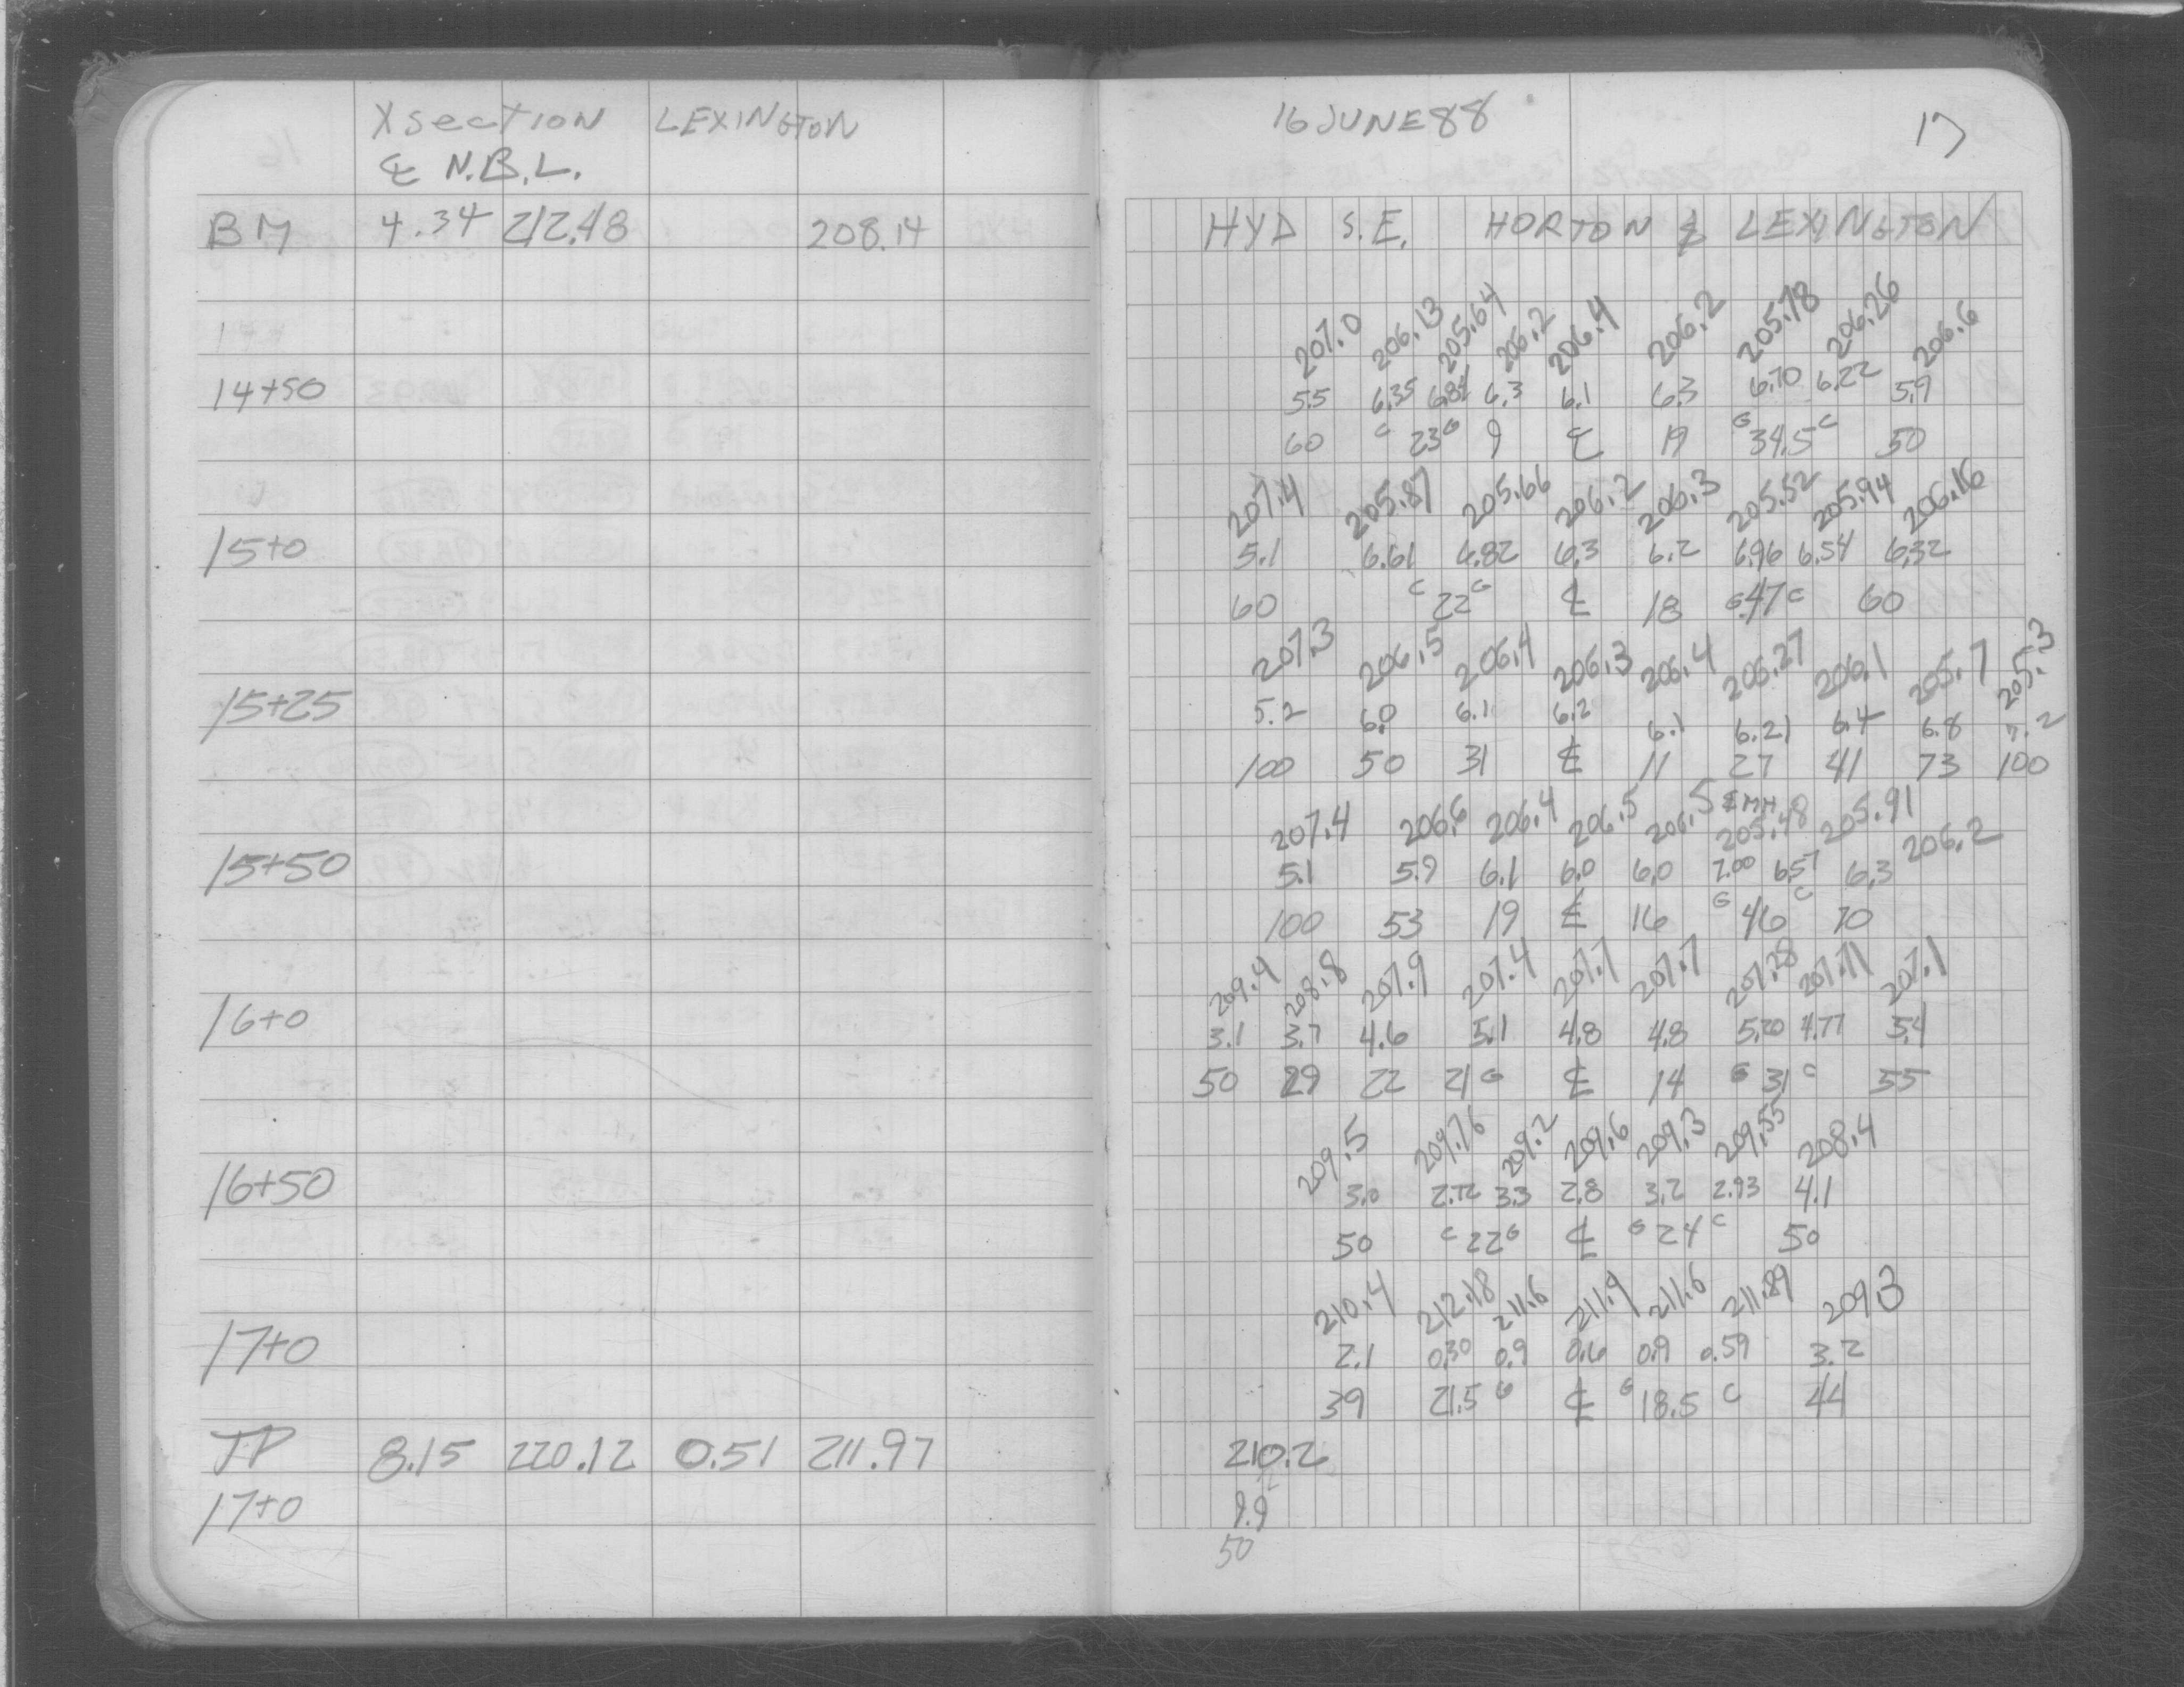 X section LEXINGTON
℄ N.B.L.
BM 4.34 212.48 208.14
14+50
15+0
15+25
15+50
16+0
16+50
17+0
TP 8.15 220.12 0.51 211.97
17+0
16 JUNE 88 17
HYD S.E. HORTON & LEXINGTON
207.0 206.13 205.64 206.2 206.4 206.2 205.78 206.26 206.6
5.5 6.35 6.84 6.3 6.1 6.3 6.70 6.22 5.9
60 C 23 G 9 ℄ 19 G 34.5 C 50
207.4 205.87 205.66 206.2 206.3 205.52 205.94 206.16
5.1 6.61 6.82 6.3 6.2 6.96 6.54 6.32
60 C 22 G ℄ 18 G 47 C 60
207.3 206.5 206.4 206.3 206.4 206.27 206.1 205.7 205.3
5.2 6.0 6.1 6.2 6.1 6.21 6.4 6.8 7.2
100 50 31 ℄ 11 27 41 73 100
℄ MH
207.4 206.6 206.4 206.5 206.5 205.48 205.91 206.2
5.1 5.9 6.1 6.0 6.0 7.00 6.57 6.3
100 53 19 ℄ 16 G 46 C 70
209.4 208.8 207.9 207.4 207.7 207.7 207.28 207.71 207.1
3.1 3.7 4.6 5.1 4.8 4.8 5.20 4.77 5.4
50 29 22 21 G ℄ 14 G 31 C 55
209.5 209.76 209.2 209.6 209.3 209.55 208.4
3.0 2.72 3.3 2.8 3.2 2.93 4.1
50 C 22 G ℄ G 24 C 50
210.4 212.18 211.6 211.9 211.6 211.89 209.3
2.1 0.30 0.9 0.6 0.9 0.59 3.2
39 21.5 G ℄ G 18.5 C 44
210.2
9.9
50